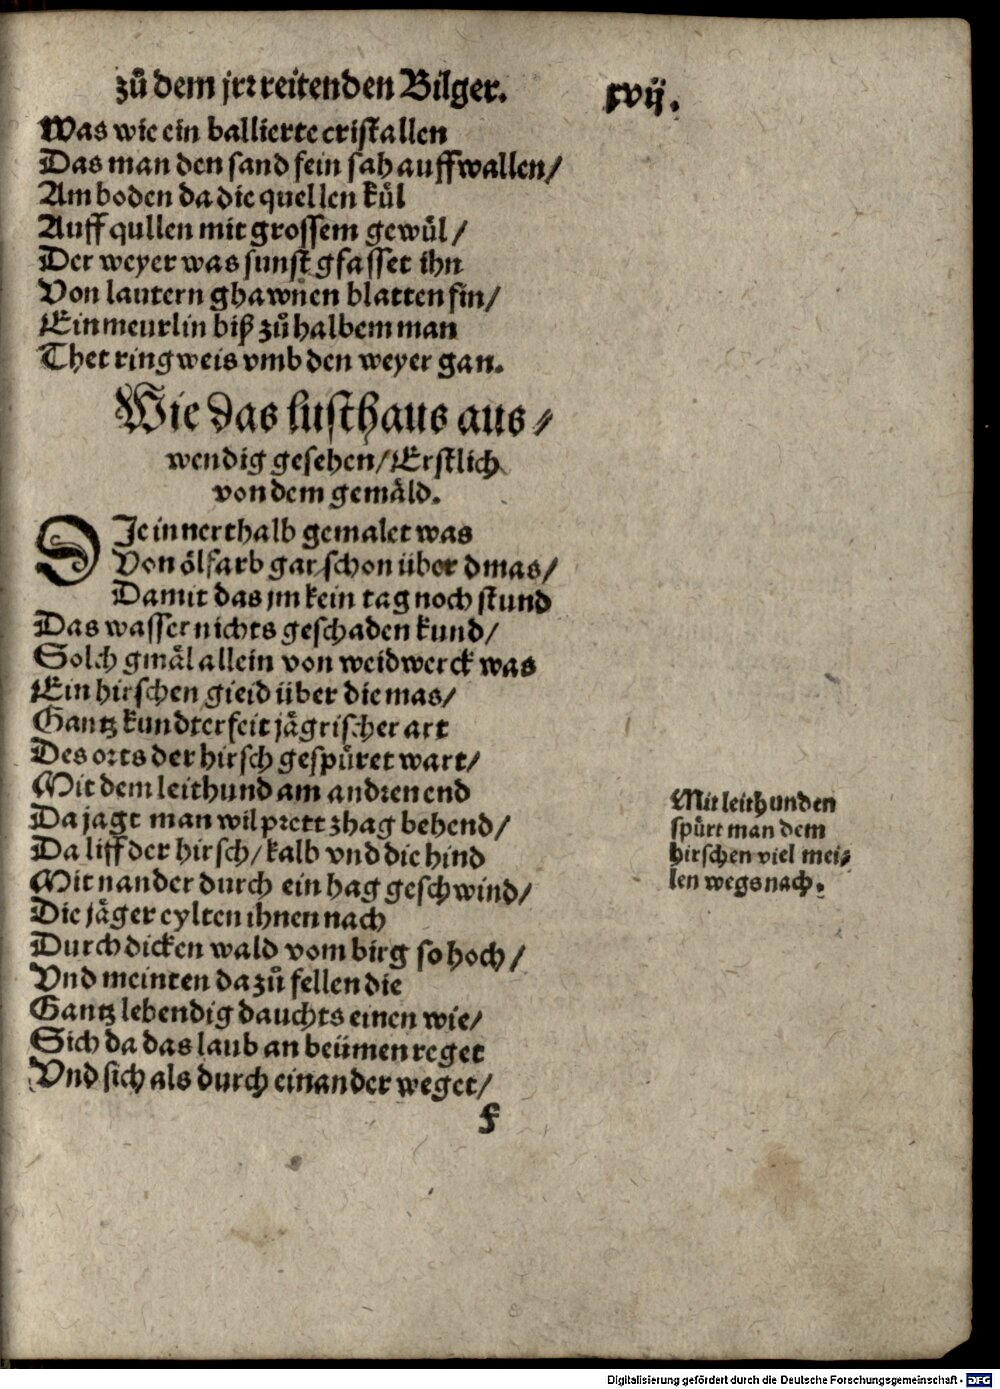 zů dem jrr reitenden Bilger. xvij.
Was wie ein ballierte cristallen
Das man den sand fein sah auffwallen/
Am boden da die quellen kůl
Auff qullen mit grossem gewůl/
Der weyer was sunst gfasset ihn
Von lautern ghawnen blatten fin/
Ein meurlin biß zů halbem man
Thet ring weis vmb den weyer gan.
Wie das lusthaus aus/
wendig gesehen/Erstlich
von dem gemäld.
DIe innerthalb gemalet was
Von ölfarb gar schon über dmas/
Damit das jm kein tag noch stund
Das wasser nichts geschaden kund/
Solch gmäl allein von weidwerck was
Ein hirschen gieid über die mas/
Gantz kundterfeit jägrischer art
Des orts der hirsch gespůret wart/
Mit dem leithund am andren end
Da jagt man wilprett zhag behend/
Da liff der hirsch/kalb vnd die hind
Mit nander durch ein hag geschwind/
Die jäger eylten ihnen nach
Durch dicken wald vom birg so hoch/
Vnd meinten da zů fellen die
Gantz lebendig dauchts einen wie/
Sich da das laub an beümen reget
Vnd sich als durch einander weget/
Mit leithunden
spůrt man dem
hirschen viel mei/
len wegs nach.
f
Digitalisierung gefördert durch die Deutsche Forschungsgemeinschaft - DFG